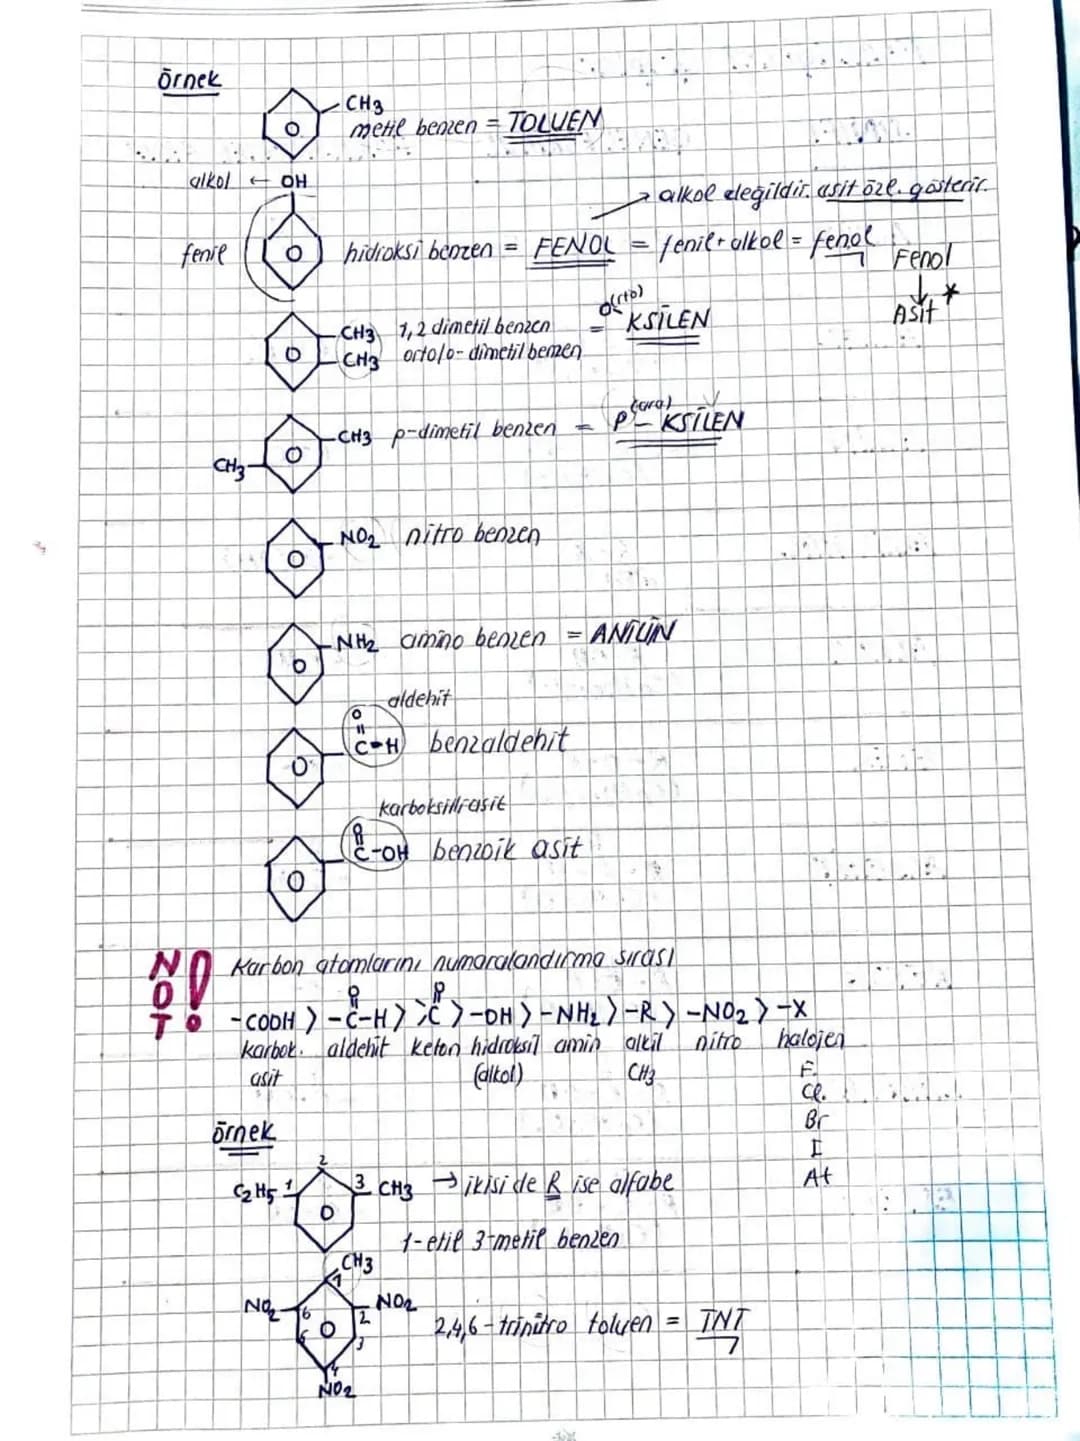 örnek
CH3
metil benzen = TOLUEN
alkol ← OH
→ alkol değildir. asit öze. gösterir.
fenil
hidroksi benzen = FENOL = fenil+alkol = fenol
Fenol
↓ *
Asit
CH3 1,2 dimetil benzen = o(rto) KSİLEN
CH3 orto/o-dimetil benzen
CH3 p-dimetil benzen = p(ara)- KSİLEN
CH3
NO2 nitro benzen
NH2 amino benzen = ANİLİN
aldehit
O
C-H benzaldehit
karboksilli asit
O
C-OH benzoik asit
NOT! Karbon atomlarını numaralandırma sırası
O O
-COOH > -C-H > >C > -OH > -NH2 > -R > -NO2 > -X
karbok. aldehit keton hidroksil amin alkil nitro halojen
asit (alkol) CH3
F.
Cl.
Br
I
At
örnek
2
C2H5 1 3 CH3 → ikisi de R ise alfabe
1-etil 3-metil benzen
CH3
1
NO2 6 2 NO2
5 3
2,4,6-trinitro toluen = TNT
4
NO2